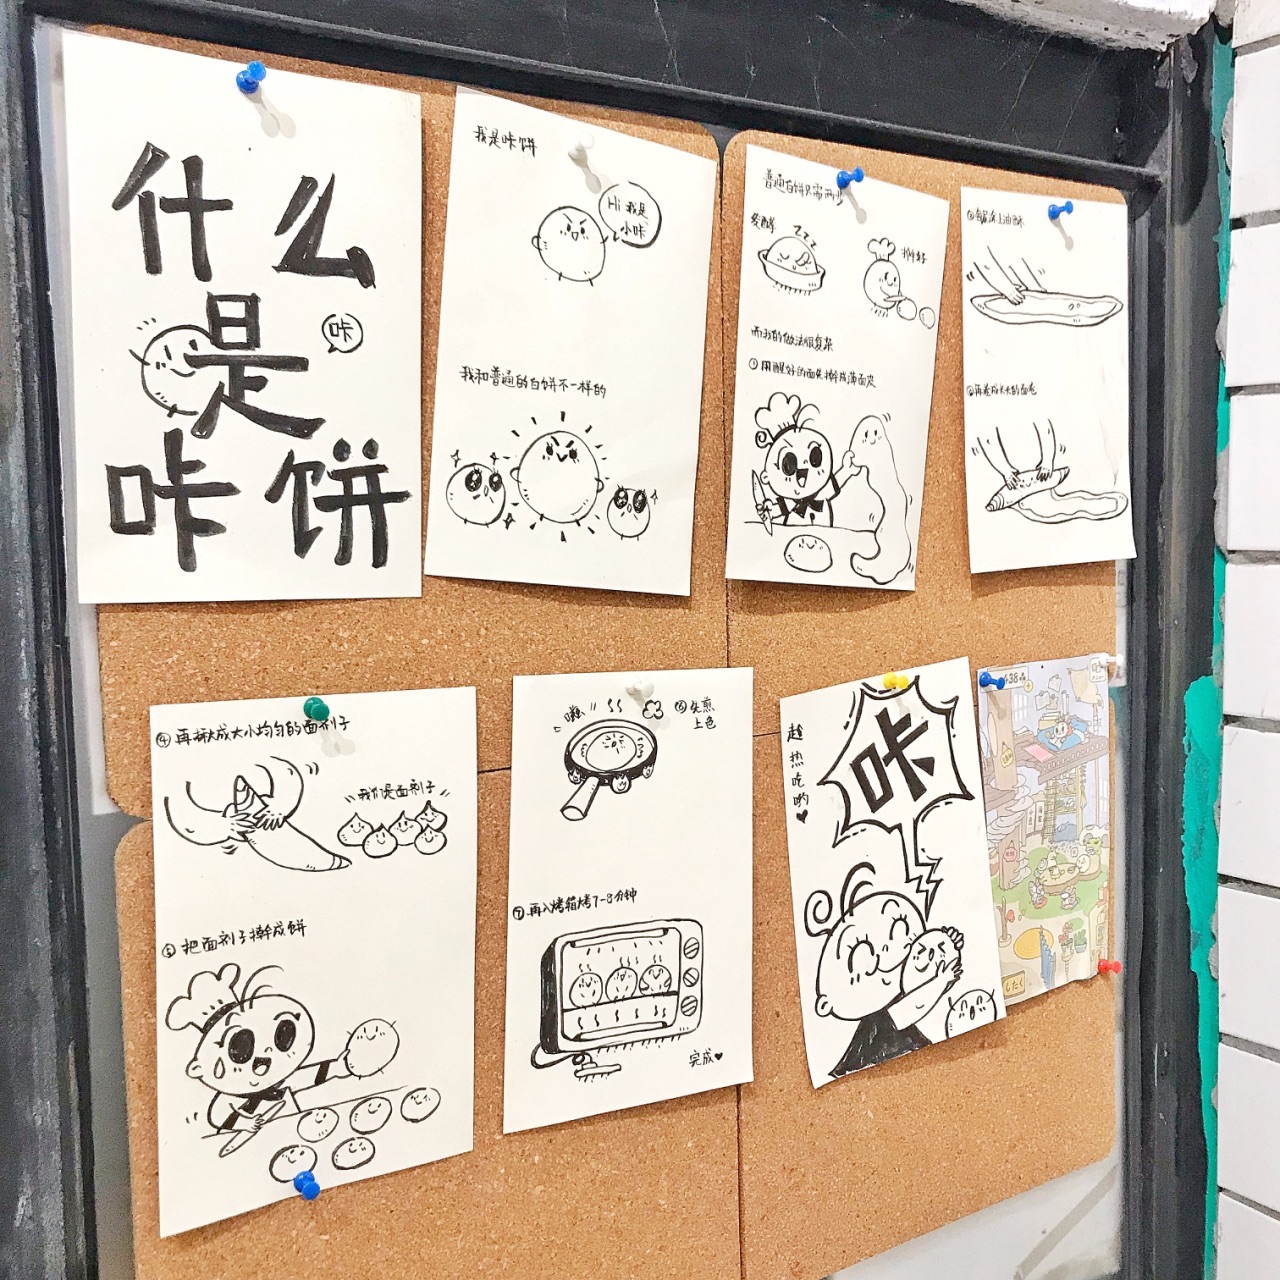 什么
是
咔
咔饼
我是咔饼
Hi 我是
小咔
我和普通的白饼不一样的
普通白饼只需两步
发酵
zzz
擀好
而我的做法很复杂
①用醒好的面头擀成薄面皮
②每层涂上油酥
③再卷成长长的面卷
④再揪成大小均匀的面剂子
我们是面剂子
⑤把面剂子擀成饼
⑥先煎
上色
⑦再入烤箱烤7-8分钟
完成♥
趁热吃哟♥
咔
したく